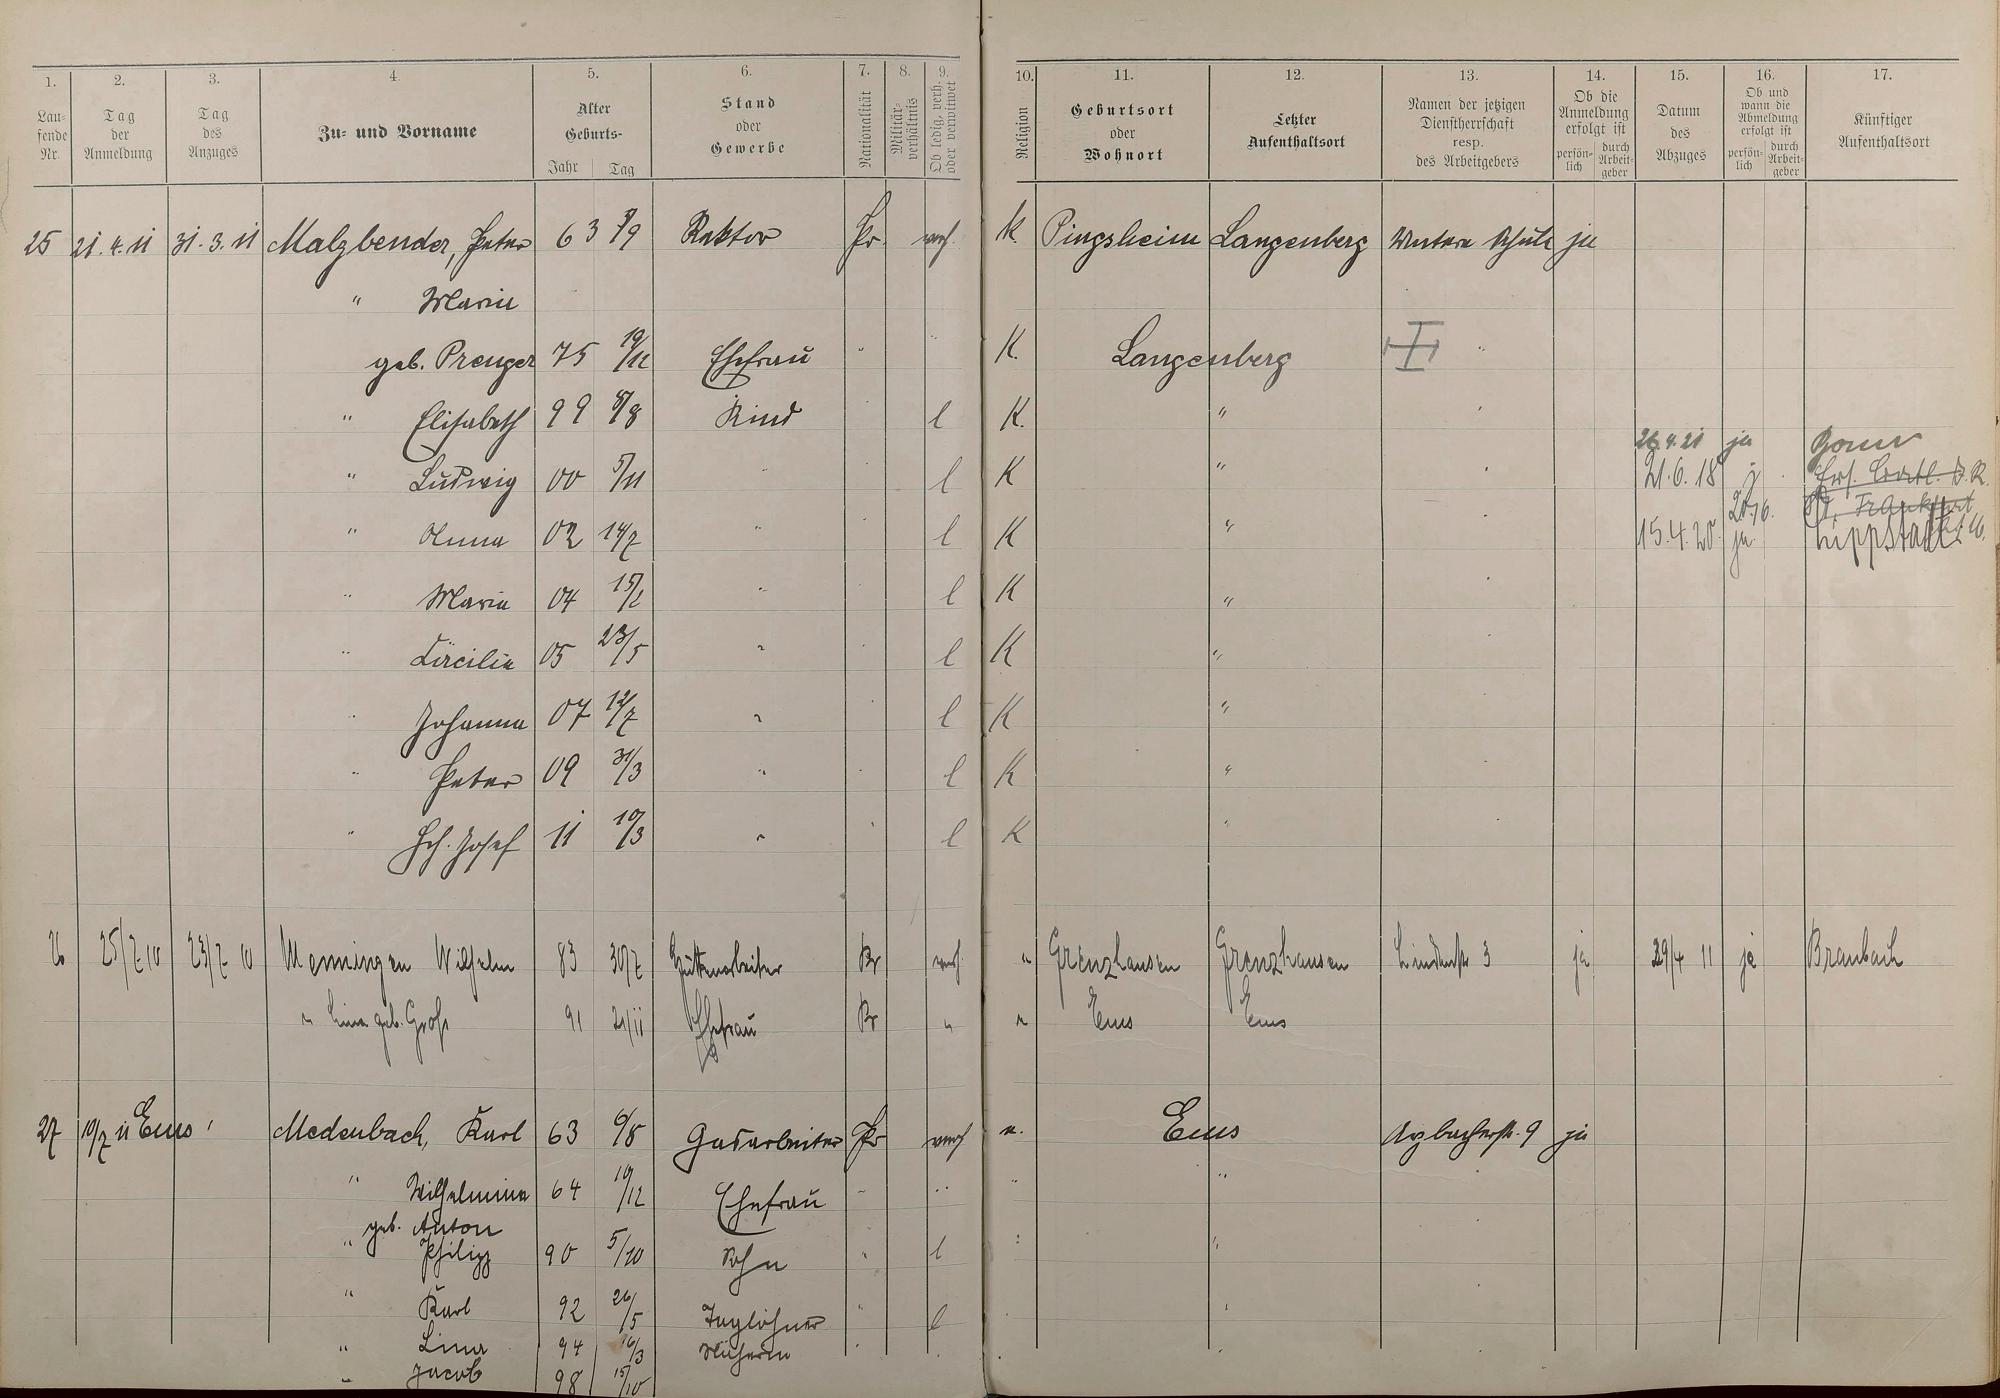 1. 2. 3. 4. 5. 6. 7. 8. 9. 10. 11. 12. 13. 14. 15. 16. 17.
Lau-
fende
Nr.
Tag
der
Anmeldung
Tag
des
Anzuges
Zu- und Vorname
Alter
Geburts-
Jahr Tag
Stand
oder
Gewerbe
Nationalität
Militär-
verhältnis
Ob ledig, verh.
oder verwitwet
Religion
Geburtsort
oder
Wohnort
Letzter
Aufenthaltsort
Namen der jetzigen
Dienstherrschaft
resp.
des Arbeitgebers
Ob die
Anmeldung
erfolgt ist
persön-
lich
durch
Arbeit-
geber
Datum
des
Abzuges
Ob und
wann die
Abmeldung
erfolgt ist
persön-
lich
durch
Arbeit-
geber
Künftiger
Aufenthaltsort
25 21.4.11 31.3.11 Malzbender, Peter 63 9 Rektor Pr. verh. K. Pingsheim Langenberg ja
" Maria
geb. Prenger 75 19/11 Ehefrau " " K. Langenberg "
" Elisabeth 99 8/8 Kind l K. " 26.4.21 ja Bonn
" Ludwig 00 5/11 " l K " 21.6.18 j
" Anna 02 14/7 " l K " 15.4.20. ja. Lippstadt
" Maria 04 15/2 " l K "
" Cäcilia 05 23/5 " l K "
" Johanna 07 12/7 " l K "
" Peter 09 31/3 " l K "
" Hch. Josef 11 10/3 " l K "
26 25/7 10 23/7 10 Menningen Wilhelm 83 30/7 Hüttenarbeiter Pr verh. " Grenzhausen Grenzhausen Lindenstr 3 ja 29/4 11 ja Braubach
" Lina geb. Groß 91 21/11 Ehefrau Pr " " Ems Ems
27 10/7 11 Ems Medenbach, Karl 63 6/8 Gasarbeiter Pr verh ev. Ems Arzbacherstr. 9 ja
" Wilhelmina 64 10/12 Ehefrau " " " "
geb. Anton
" Philipp 90 5/10 Sohn " l " "
" Karl 92 26/5 Taglöhner " l "
" Lina 94 16/3 Näherin
" Jacob 98 15/10